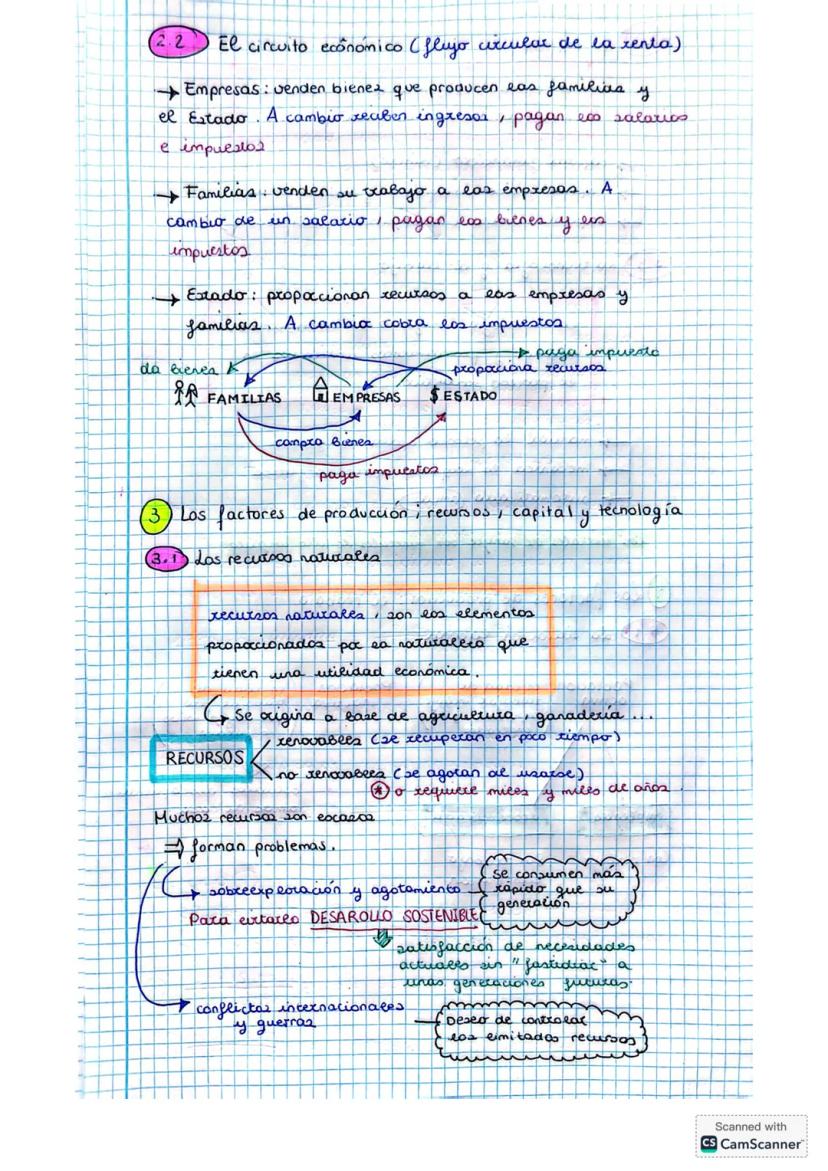 2.2 El circuito económico (flujo circular de la renta)
→ Empresas: venden bienes que producen las familias y
el Estado. A cambio reciben ingresos, pagan los salarios
e impuestos
→ Familias: venden su trabajo a las empresas. A
cambio de un salario, pagan los bienes y los
impuestos
→ Estado: proporcionan recursos a las empresas y
familias. A cambio cobra los impuestos
paga impuesto
da bienes
proporciona recursos
FAMILIAS EMPRESAS $ ESTADO
compra bienes
paga impuestos
3 Los factores de producción; recursos, capital y tecnología
3.1 Los recursos naturales
recursos naturales, son los elementos
proporcionados por la naturaleza que
tienen una utilidad económica.
Se origina a base de agricultura, ganadería ...
renovables (se recuperan en poco tiempo)
RECURSOS
no renovables (se agotan al usarse)
* o requiere miles y miles de años.
Muchos recursos son escasos
⇒ forman problemas.
Se consumen más
rápido que su
generación
→ sobreexploración y agotamiento
Para evitarlo DESAROLLO SOSTENIBLE
satisfacción de necesidades
actuales sin "fastidiar" a
unas generaciones futuras.
→ conflictos internacionales
y guerras
Deseo de controlar
los limitados recursos
Scanned with
CS CamScanner